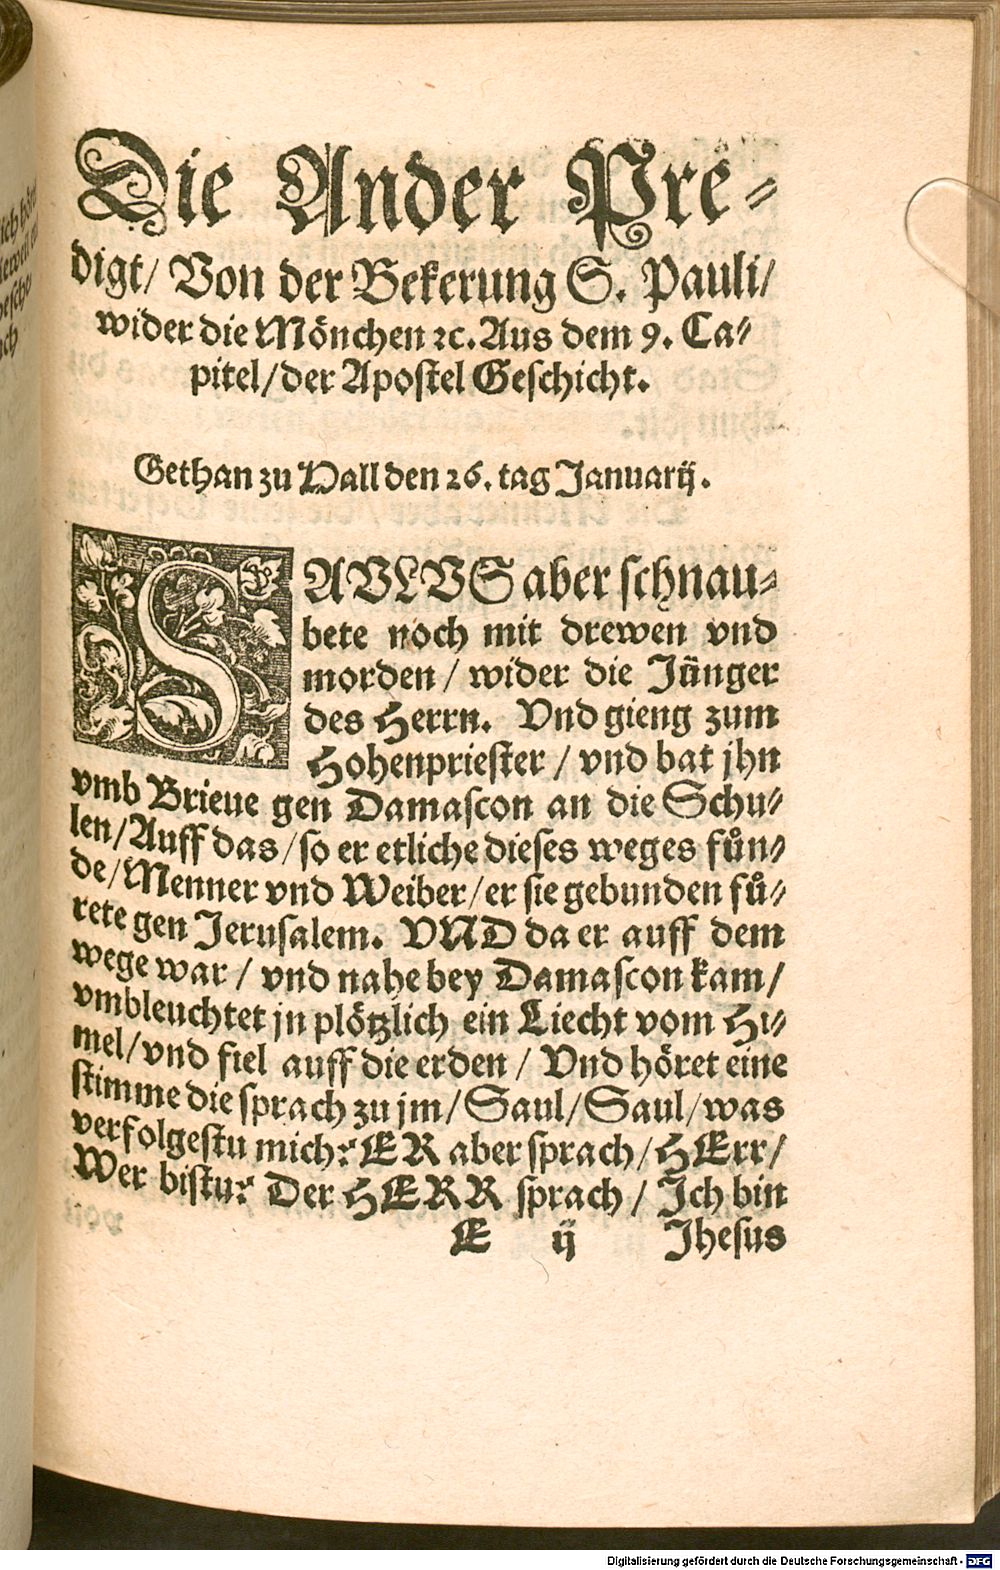 Die Ander Pre-
digt/ Von der Bekerung S. Pauli/
wider die Mönchen ꝛc. Aus dem 9. Ca-
pitel/ der Apostel Geschicht.
Gethan zu Hall den 26. tag Januarij.
SAVLVS aber schnau-
bete noch mit drewen vnd
morden/ wider die Jünger
des Herrn. Vnd gieng zum
Hohenpriester/ vnd bat jhn
vmb Brieue gen Damascon an die Schu-
len/ Auff das/ so er etliche dieses weges fün-
de/ Menner vnd Weiber/ er sie gebunden fü-
rete gen Jerusalem. VND da er auff dem
wege war/ vnd nahe bey Damascon kam/
vmbleuchtet jn plötzlich ein Liecht vom Hi-
mel/ vnd fiel auff die erden/ Vnd höret eine
stimme die sprach zu jm/ Saul/ Saul/ was
verfolgestu mich? ER aber sprach/ HErr/
Wer bistu? Der HERR sprach/ Ich bin
E ij Jhesus
Digitalisierung gefördert durch die Deutsche Forschungsgemeinschaft - DFG